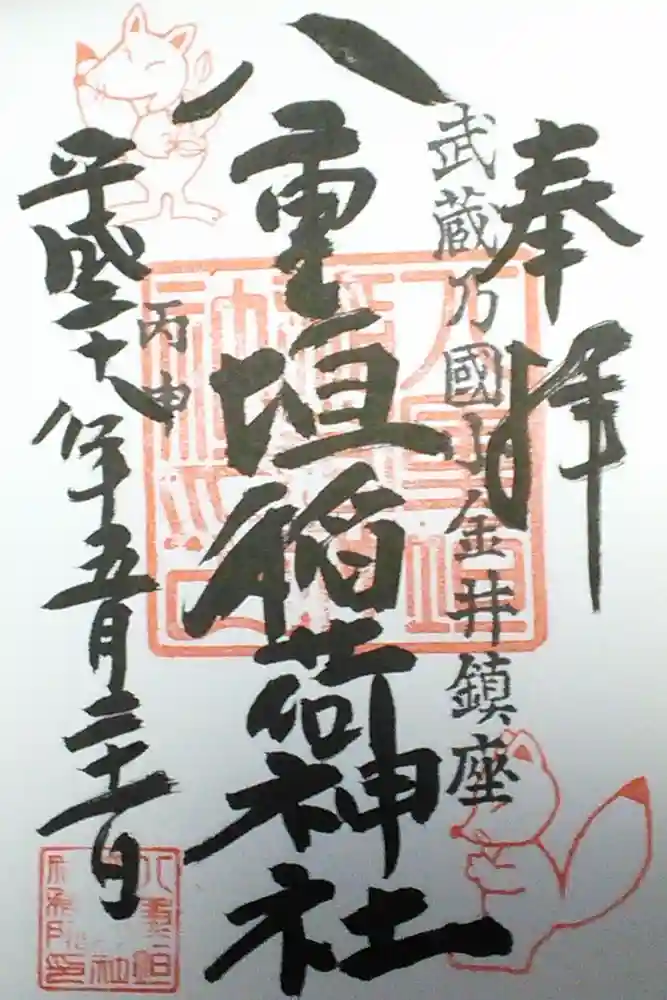 奉拝
武蔵乃國小金井鎮座
八重垣稲荷神社
丙申
平成二十八年五月二十一日